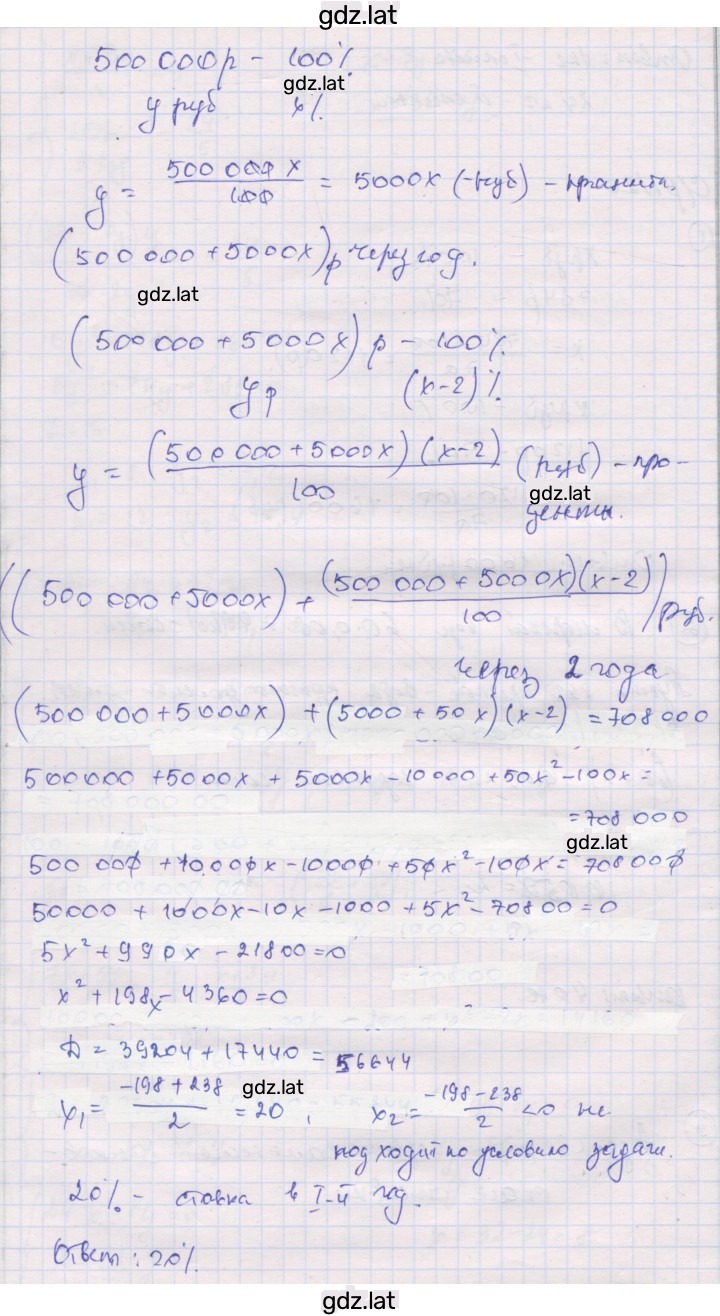 gdz.lat
500 000р – 100%
gdz.lat
y руб x%
y = 500 000 x / 100 = 5000x (руб) –
(500 000 + 5000x) р через год.
gdz.lat
(500 000 + 5000x) р – 100%
y р (x-2)%
y = (500 000 + 5000x) (x-2) / 100 (руб) – про-
gdz.lat
центы.
((500 000 + 5000x) + (500 000 + 5000x)(x-2) / 100) руб.
через 2 года
(500 000 + 5000x) + (5000 + 50x)(x-2) = 708 000
500 000 + 5000x + 5000x - 10 000 + 50x² - 100x =
= 708 000
gdz.lat
500 000 + 10000x - 10000 + 50x² - 100x = 708 000
50000 + 1000x - 10x - 1000 + 5x² - 70800 = 0
5x² + 990x - 21800 = 0
x² + 198x - 4360 = 0
D = 39204 + 17440 = 56644
gdz.lat
x₁ = -198 + 238 / 2 = 20, x₂ = -198 - 238 / 2 < 0 не
подходит по условию задачи.
20% – ставка в I-й год.
Ответ: 20%.
gdz.lat